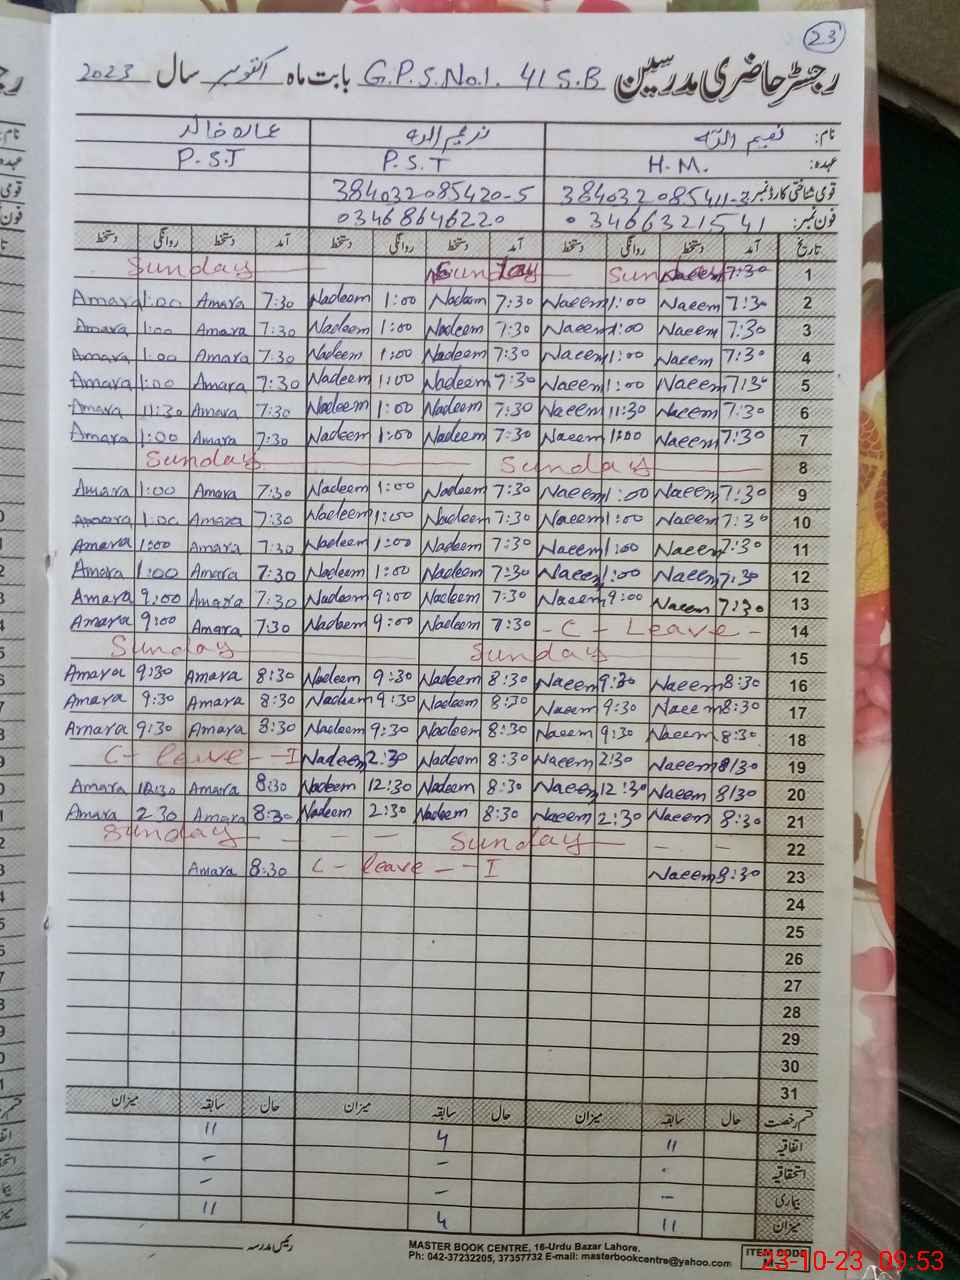 23
رجسٹر حاضری مدرسین G.P.S.No.1. 41 S.B بابت ماہ اکتوبر سال 2023
نام: نعیم اللہ ندیم اللہ عمارہ خالد
عہدہ: H.M. P.S.T P.S.T
قومی شناختی کارڈ نمبر: 384032085420-5
فون نمبر: 03466321541 03468646220
تاریخ آمد دستخط روانگی دستخط آمد دستخط روانگی دستخط آمد دستخط روانگی دستخط
Sunday Sunday Sunday Naeem 7:30 1
Amara 1:00 Amara 7:30 Nadeem 1:00 Nadeem 7:30 Naeem 1:00 Naeem 7:30 2
Amara 1:00 Amara 7:30 Nadeem 1:00 Nadeem 7:30 Naeem 1:00 Naeem 7:30 3
Amara 1:00 Amara 7:30 Nadeem 1:00 Nadeem 7:30 Naeem 1:00 Naeem 7:30 4
Amara 1:00 Amara 7:30 Nadeem 1:00 Nadeem 7:30 Naeem 1:00 Naeem 7:30 5
Amara 11:30 Amara 7:30 Nadeem 1:00 Nadeem 7:30 Naeem 11:30 Naeem 7:30 6
Amara 1:00 Amara 7:30 Nadeem 1:00 Nadeem 7:30 Naeem 1:00 Naeem 7:30 7
Sunday Sunday 8
Amara 1:00 Amara 7:30 Nadeem 1:00 Nadeem 7:30 Naeem 1:00 Naeem 7:30 9
Amara 1:00 Amara 7:30 Nadeem 1:00 Nadeem 7:30 Naeem 1:00 Naeem 7:30 10
Amara 1:00 Amara 7:30 Nadeem 1:00 Nadeem 7:30 Naeem 1:00 Naeem 7:30 11
Amara 1:00 Amara 7:30 Nadeem 1:00 Nadeem 7:30 Naeem 1:00 Naeem 7:30 12
Amara 9:00 Amara 7:30 Nadeem 9:00 Nadeem 7:30 Naeem 9:00 Naeem 7:30 13
Amara 9:00 Amara 7:30 Nadeem 9:00 Nadeem 7:30 - C - Leave - 14
Sunday Sunday 15
Amara 9:30 Amara 8:30 Nadeem 9:30 Nadeem 8:30 Naeem 9:30 Naeem 8:30 16
Amara 9:30 Amara 8:30 Nadeem 9:30 Nadeem 8:30 Naeem 9:30 Naeem 8:30 17
Amara 9:30 Amara 8:30 Nadeem 9:30 Nadeem 8:30 Naeem 9:30 Naeem 8:30 18
C- leave - - I Nadeem 2:30 Nadeem 8:30 Naeem 2:30 Naeem 8:30 19
Amara 12:30 Amara 8:30 Nadeem 12:30 Nadeem 8:30 Naeem 12:30 Naeem 8:30 20
Amara 2:30 Amara 8:30 Nadeem 2:30 Nadeem 8:30 Naeem 2:30 Naeem 8:30 21
Sunday - - - Sunday - - 22
Amara 8:30 C - leave - - I Naeem 8:30 23
24
25
26
27
28
29
30
31
قسم رخصت حال سابقہ میزان حال سابقہ میزان حال سابقہ میزان
اتفاقیہ 11 4 11
استحقاقیہ - -
بیماری - - -
میزان 11 4 11
رئیس مدرسہ
MASTER BOOK CENTRE, 16-Urdu Bazar Lahore.
Ph: 042-37232205, 37357732 E-mail: masterbookcentre@yahoo.com
ITEM CODE
23-10-23 09:53